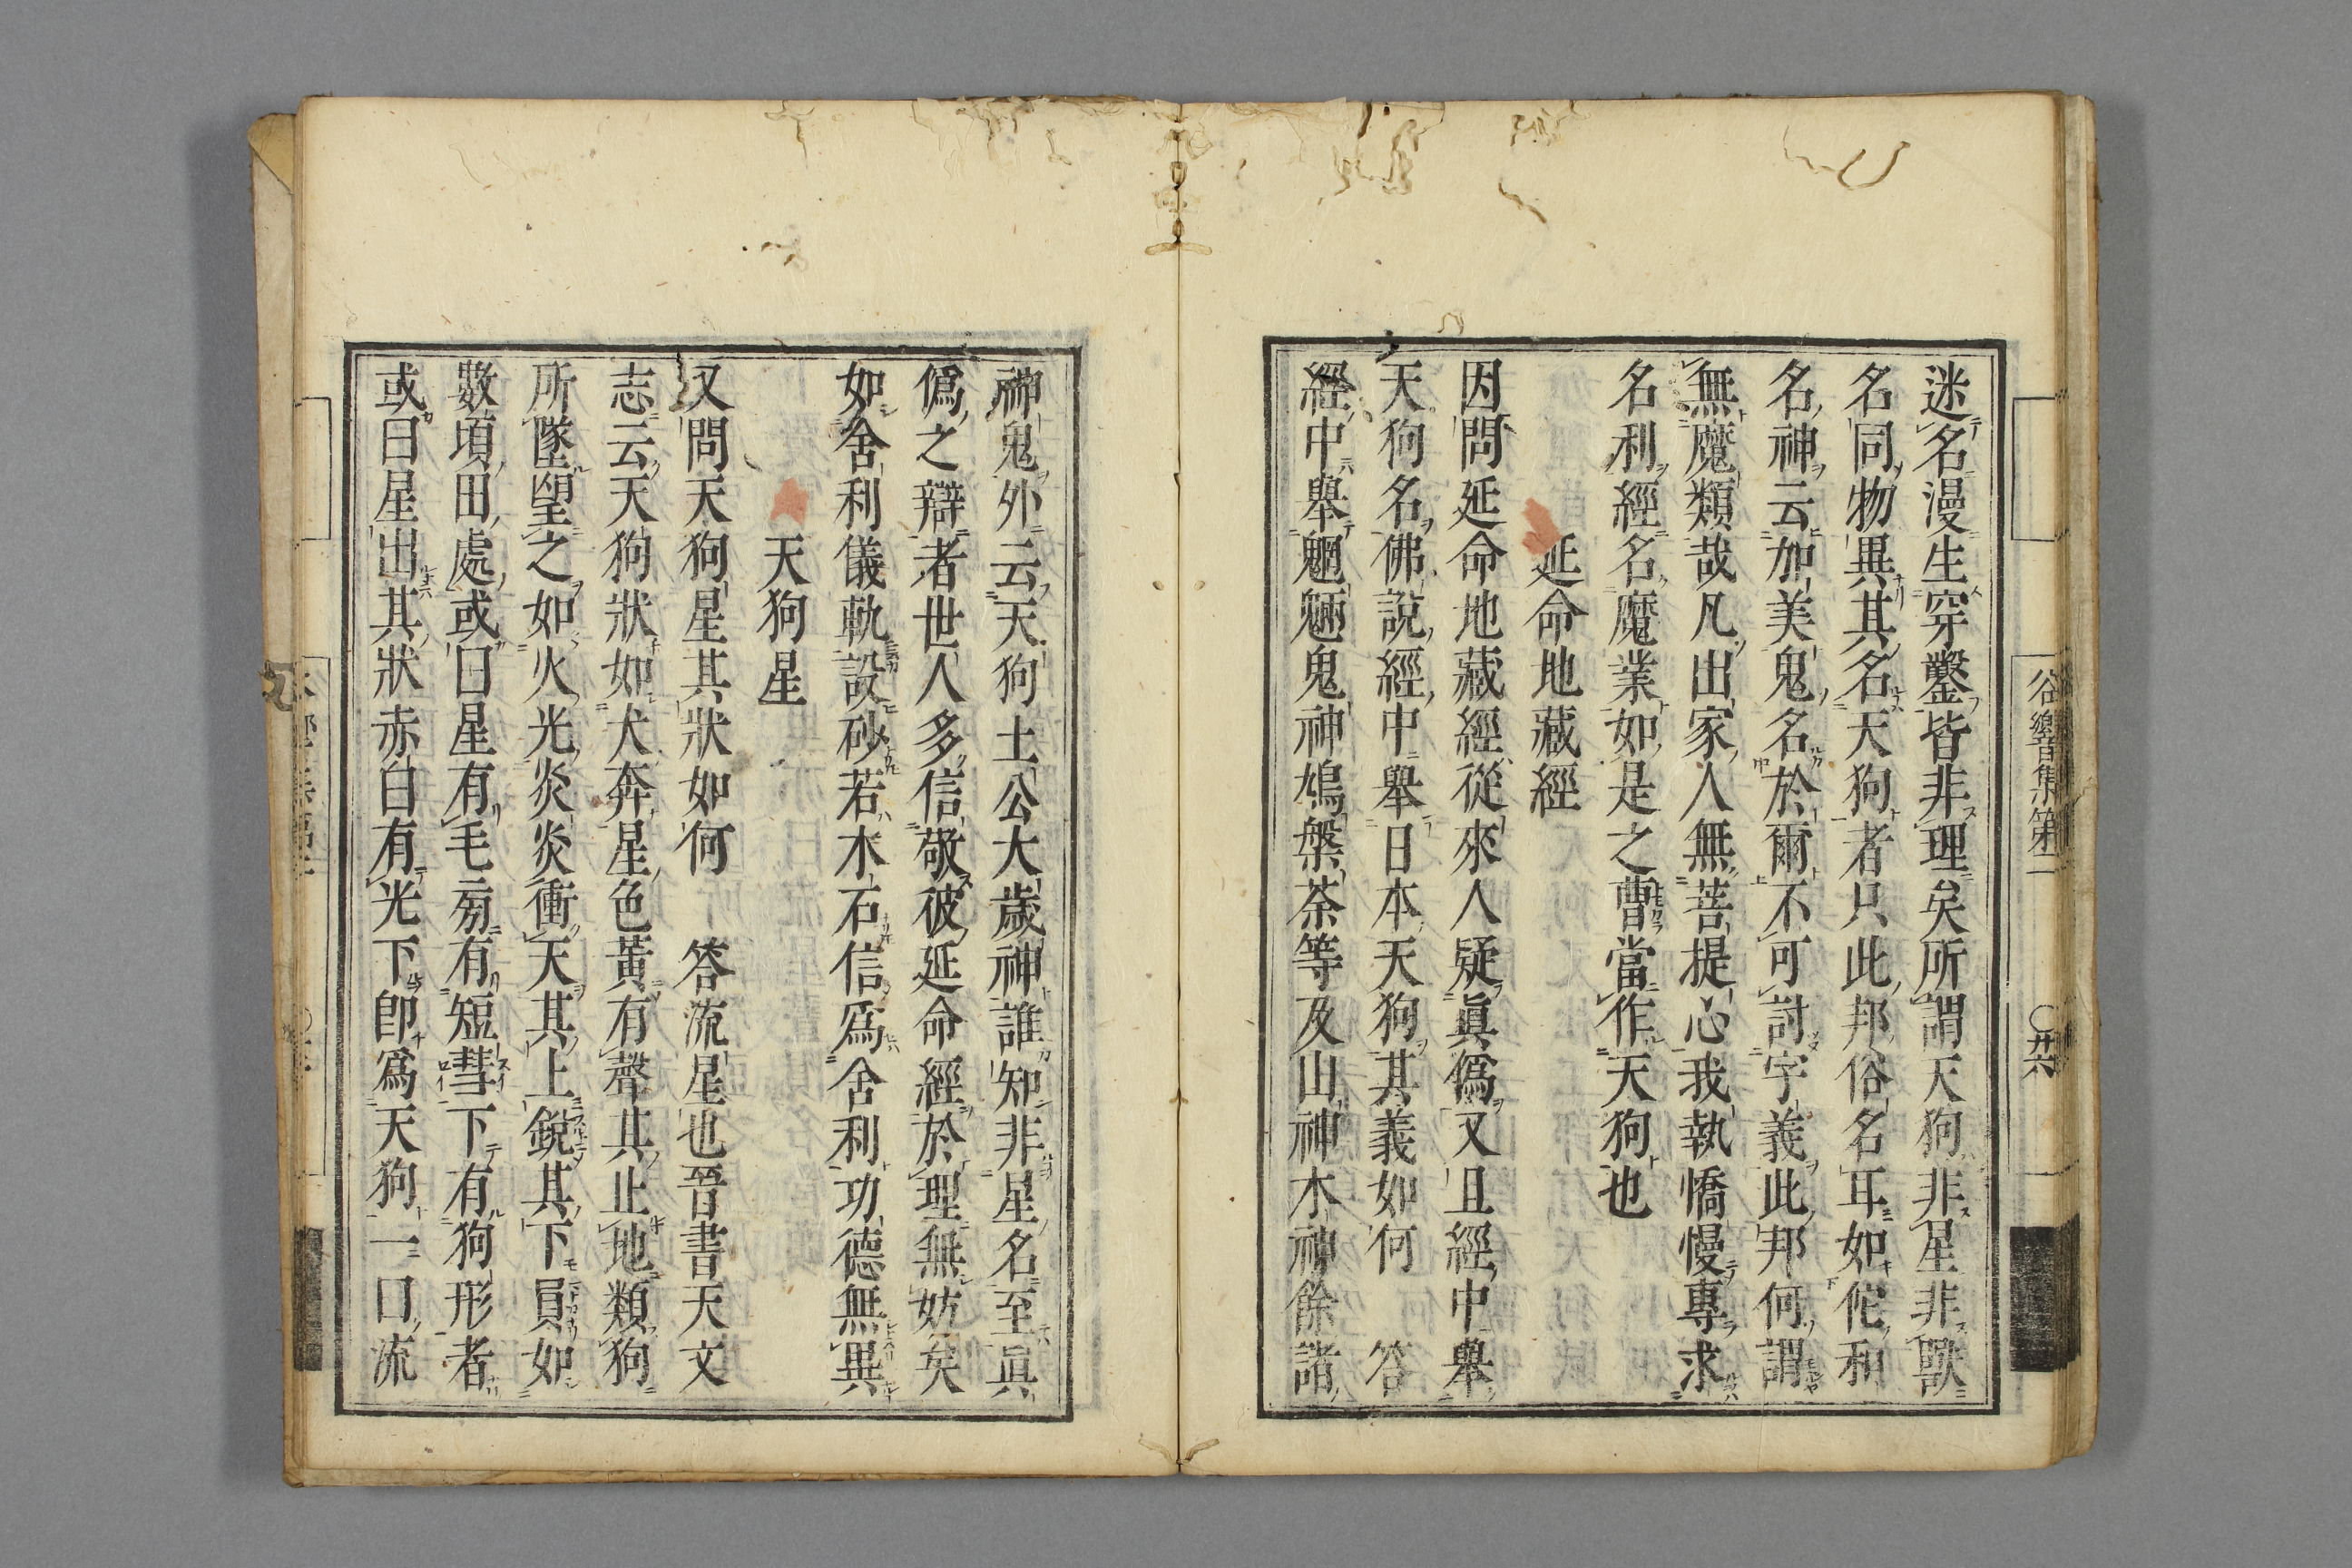 迷名漫生穿鑿皆非理矣所謂天狗非星非獸
名同物異其名天狗者只此邦俗名耳如佗和
名神云加美鬼名於爾不可討字義此邦何謂
無魔類哉凡出家人無菩提心我執憍慢專求
名利經名魔業如是之曹當作天狗也
延命地藏經
因問延命地藏經從來人疑眞僞又且經中舉
天狗名佛說經中舉日本天狗其義如何　答
經中舉魍魎鬼神鳩槃荼等及山神木神餘諸
谷響集第二
〇廿六
神鬼外云天狗土公大歲神誰知非星名至眞
僞之辯者世人多信敬彼延命經於理無妨矣
如舍利儀軌設砂若木石信爲舍利功德無異
天狗星
又問天狗星其狀如何　答流星也晉書天文
志云天狗狀如犬奔星色黃有聲其止地類狗
所墜望之如火光炎炎衝天其上銳其下員如
數頃田處或曰星有毛旁有短彗下有狗形者
或曰星出其狀赤白有光下卽爲天狗一曰流